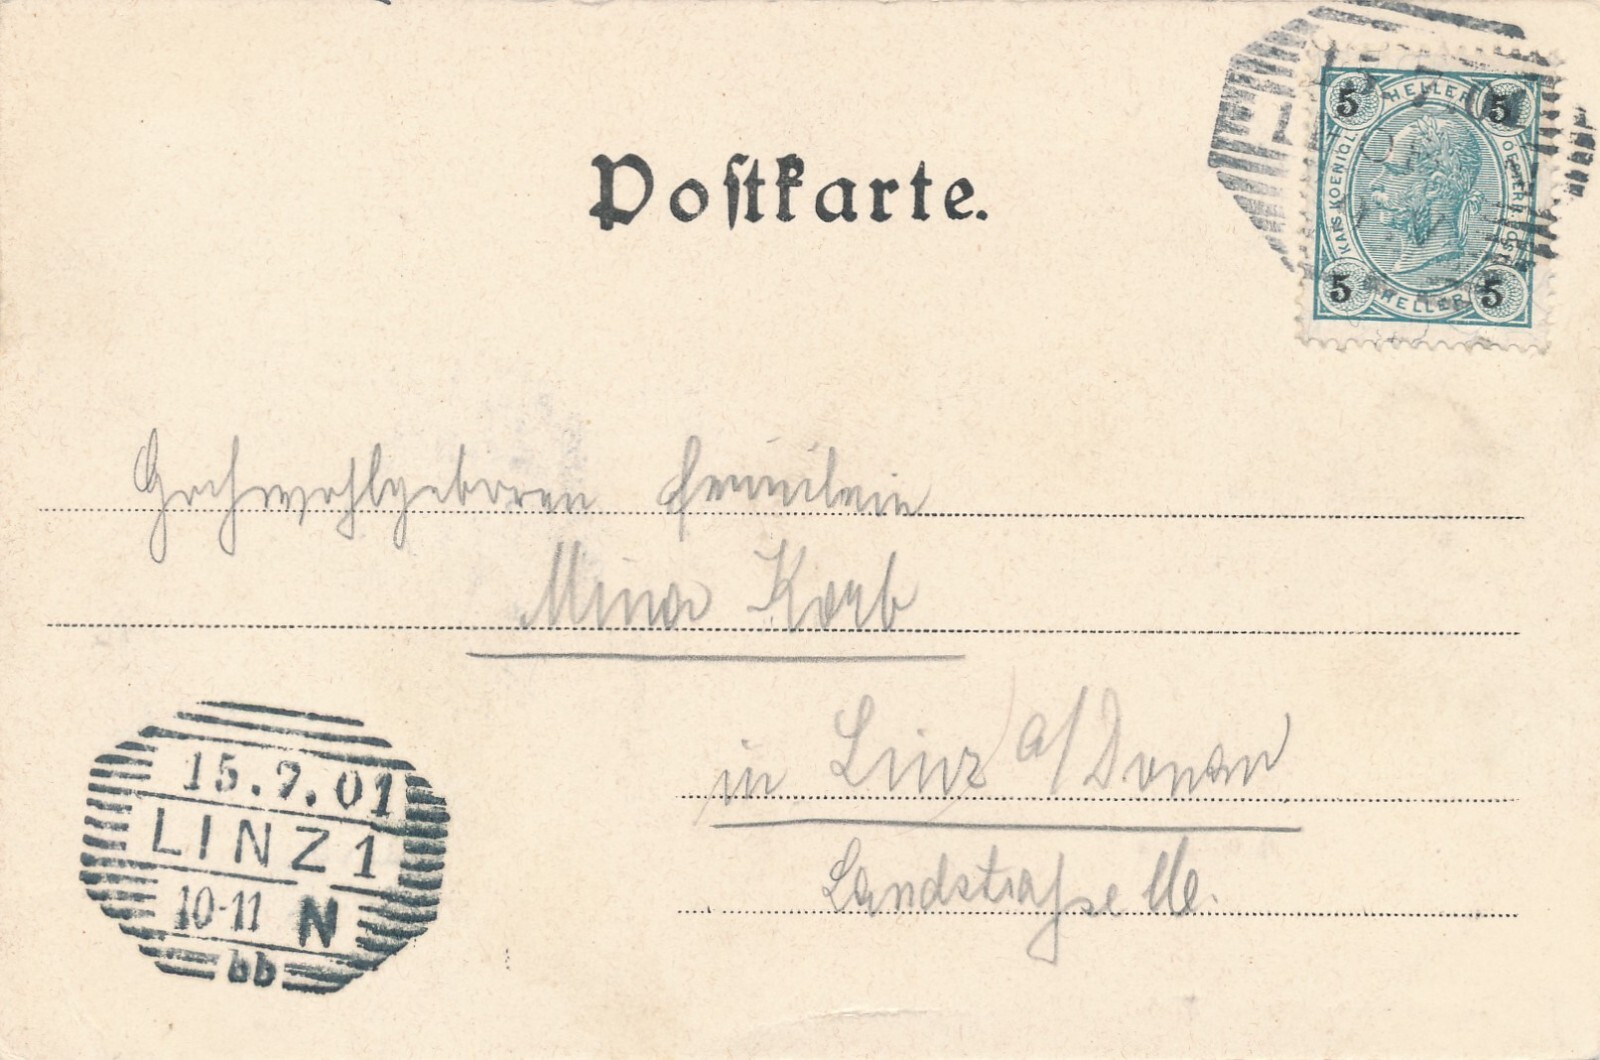 Postkarte.
5 HELLER 5
KAIS. KOENIGL. OESTERR. POST
5 HELLER 5
Hochwohlgeboren Fräulein
Mina Korb
in Linz a/Donau
Landstraße
15.7.01
LINZ 1
10-11 N
bb